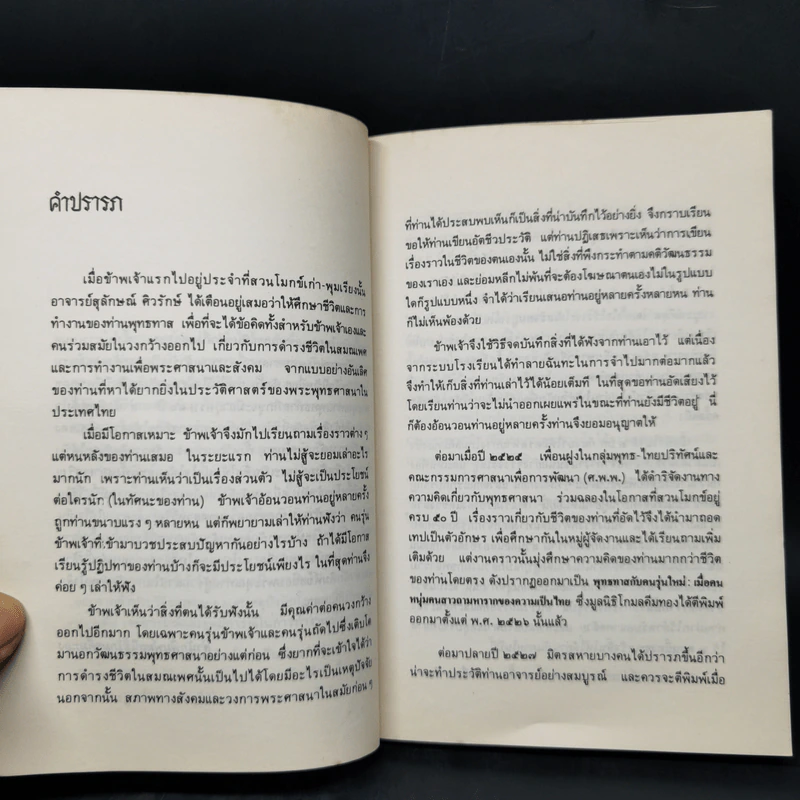 คำปรารภ
เมื่อข้าพเจ้าแรกไปอยู่ประจำที่สวนโมกข์เก่า-พุมเรียงนั้น
อาจารย์สุลักษณ์ ศิวรักษ์ ได้เตือนอยู่เสมอว่าให้ศึกษาชีวิตและการ
ทำงานของท่านพุทธทาส เพื่อที่จะได้ข้อคิดทั้งสำหรับข้าพเจ้าเองและ
คนร่วมสมัยในวงกว้างออกไป เกี่ยวกับการดำรงชีวิตในสมณเพศ
และการทำงานเพื่อพระศาสนาและสังคม จากแบบอย่างอันเลิศ
ของท่านที่หาได้ยากยิ่งในประวัติศาสตร์ของพระพุทธศาสนาใน
ประเทศไทย
เมื่อมีโอกาสเหมาะ ข้าพเจ้าจึงมักไปเรียนถามเรื่องราวต่างๆ
แต่หนหลังของท่านเสมอ ในระยะแรก ท่านไม่สู้จะยอมเล่าอะไร
มากนัก เพราะท่านเห็นว่าเป็นเรื่องส่วนตัว ไม่สู้จะเป็นประโยชน์
ต่อใครนัก (ในทัศนะของท่าน) ข้าพเจ้าอ้อนวอนท่านอยู่หลายครั้ง
ถูกท่านขนาบแรงๆ หลายหน แต่ก็พยายามเล่าให้ท่านฟังว่า คนรุ่น
ข้าพเจ้าที่เข้ามาบวชประสบปัญหากันอย่างไรบ้าง ถ้าได้มีโอกาส
เรียนรู้ปฏิปทาของท่านบ้างก็จะมีประโยชน์เพียงไร ในที่สุดท่านจึง
ค่อยๆ เล่าให้ฟัง
ข้าพเจ้าเห็นว่าสิ่งที่ตนได้รับฟังนั้น มีคุณค่าต่อคนวงกว้าง
ออกไปอีกมาก โดยเฉพาะคนรุ่นข้าพเจ้าและคนรุ่นถัดไปซึ่งเติบโต
มานอกวัฒนธรรมพุทธศาสนาอย่างแต่ก่อน ซึ่งยากที่จะเข้าใจได้ว่า
การดำรงชีวิตในสมณเพศนั้นเป็นไปได้โดยมีอะไรเป็นเหตุปัจจัย
นอกจากนั้น สภาพทางสังคมและวงการพระศาสนาในสมัยก่อน ๆ
ที่ท่านได้ประสบพบเห็นก็เป็นสิ่งที่น่าบันทึกไว้อย่างยิ่ง จึงกราบเรียน
ขอให้ท่านเขียนอัตชีวประวัติ แต่ท่านปฏิเสธเพราะเห็นว่าการเขียน
เรื่องราวในชีวิตของตนเองนั้น ไม่ใช่สิ่งที่พึงกระทำตามคติวัฒนธรรม
ของเราเอง และย่อมหลีกไม่พ้นที่จะต้องโฆษณาตนเองไม่ในรูปแบบ
ใดก็รูปแบบหนึ่ง จำได้ว่าเรียนเสนอท่านอยู่หลายครั้งหลายหน ท่าน
ก็ไม่เห็นพ้องด้วย
ข้าพเจ้าจึงใช้วิธีจดบันทึกสิ่งที่ได้ฟังจากท่านเอาไว้ แต่เนื่อง
จากระบบโรงเรียนได้ทำลายฉันทะในการจำไปมากต่อมากแล้ว
จึงทำให้เก็บสิ่งที่ท่านเล่าไว้ได้น้อยเต็มที ในที่สุดขอท่านอัดเสียงไว้
โดยเรียนท่านว่าจะไม่นำออกเผยแพร่ในขณะที่ท่านยังมีชีวิตอยู่ นี่
ก็ต้องอ้อนวอนท่านอยู่หลายครั้งท่านจึงยอมอนุญาตให้
ต่อมาเมื่อปี ๒๕๒๕ เพื่อนฝูงในกลุ่มพุทธ-ไทยปริทัศน์และ
คณะกรรมการศาสนาเพื่อการพัฒนา (ศ.พ.พ.) ได้ดำริจัดงานทาง
ความคิดเกี่ยวกับพุทธศาสนา ร่วมฉลองในโอกาสที่สวนโมกข์อยู่
ครบ ๕๐ ปี เรื่องราวเกี่ยวกับชีวิตของท่านที่อัดไว้จึงได้นำมาถอด
เทปเป็นตัวอักษร เพื่อศึกษากันในหมู่ผู้จัดงานและได้เรียนถามเพิ่ม
เติมด้วย แต่งานคราวนั้นมุ่งศึกษาความคิดของท่านมากกว่าชีวิต
ของท่านโดยตรง ดังปรากฏออกมาเป็น พุทธทาสกับคนรุ่นใหม่: เมื่อคน
หนุ่มคนสาวถามหารากของความเป็นไทย ซึ่งมูลนิธิโกมลคีมทองได้ตีพิมพ์
ออกมาตั้งแต่ พ.ศ. ๒๕๒๖ นั้นแล้ว
ต่อมาปลายปี ๒๕๒๗ มิตรสหายบางคนได้ปรารภขึ้นอีกว่า
น่าจะทำประวัติท่านอาจารย์อย่างสมบูรณ์ และควรจะตีพิมพ์เมื่อ